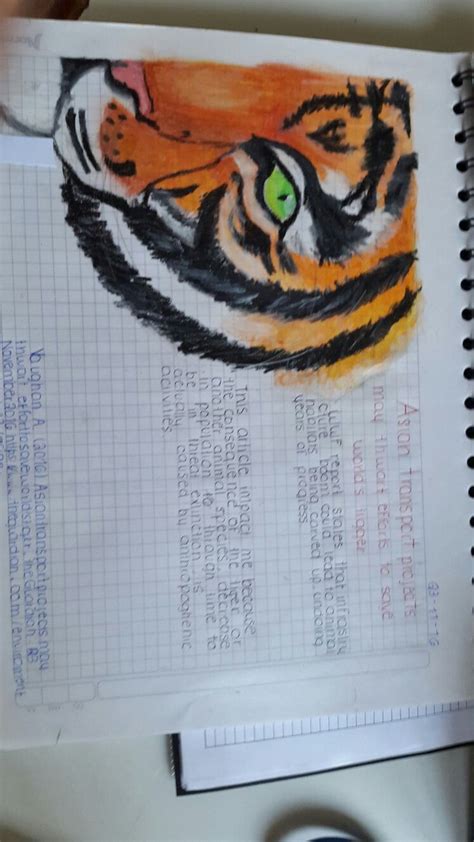 23-11-16
Asian transport projects
may thwart efforts to save
world's tigger
WWF report states that infrastry
cture boom could lead to animal
habitans being carved up undoing
years of progress
This article impact me because
the consequence of the tiger or
another animal species, decrease
in population to through time to
be in threat extinction is
actually caused by anthropoghenic
activities
Vaughan A. (2016) Asian transport projects may
thwart efforts to save world's tiger, the Guardian, 23
November 2016 http://www.theguardian.com/environment